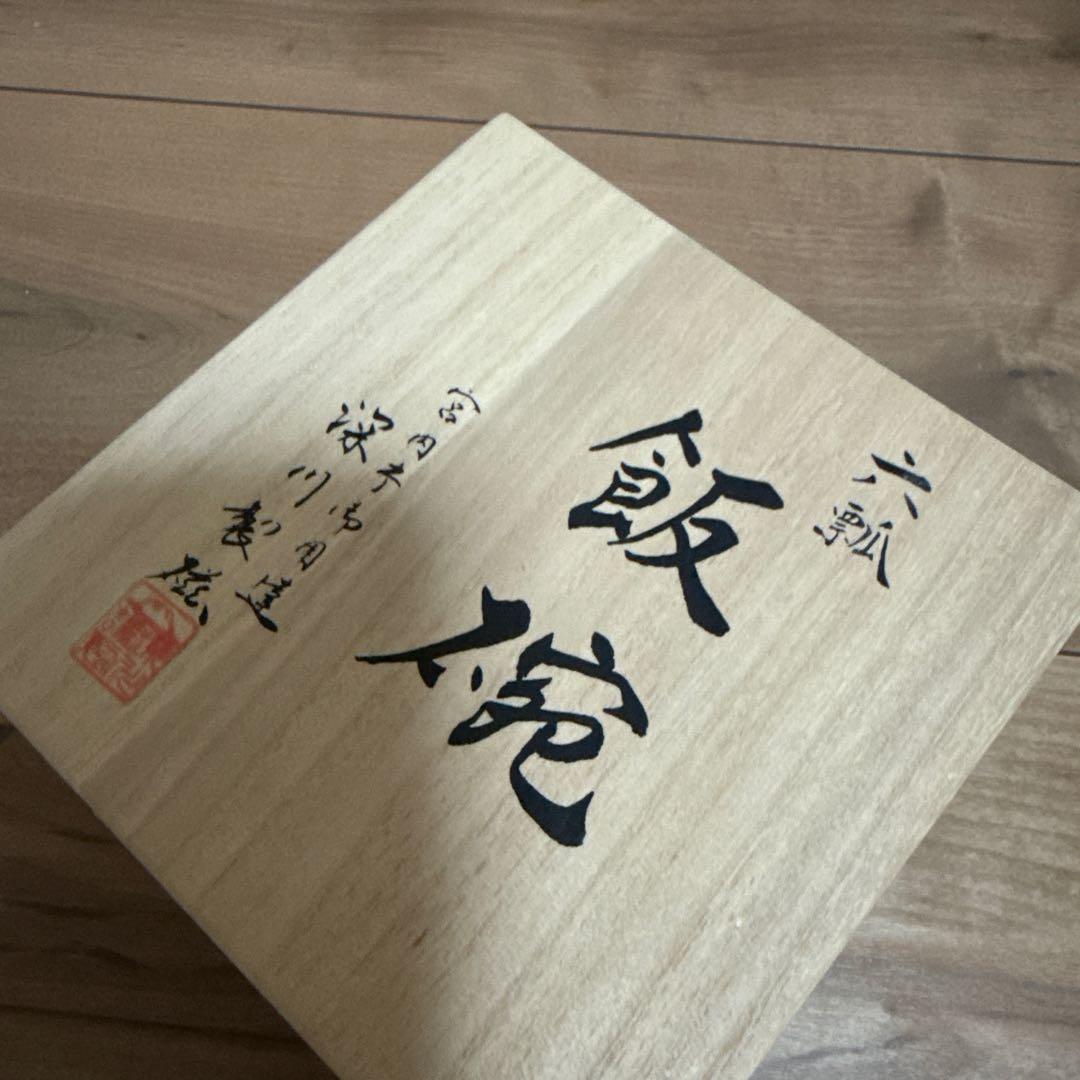 六瓢
飯碗
宮内庁御用達
深川製磁